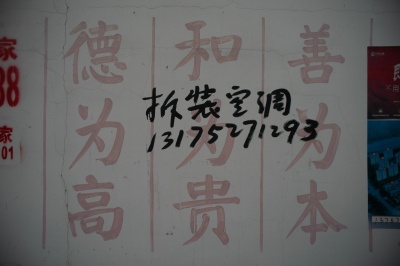 德为高
和为贵
善为本
拆装空调
13175271293
家
家
01